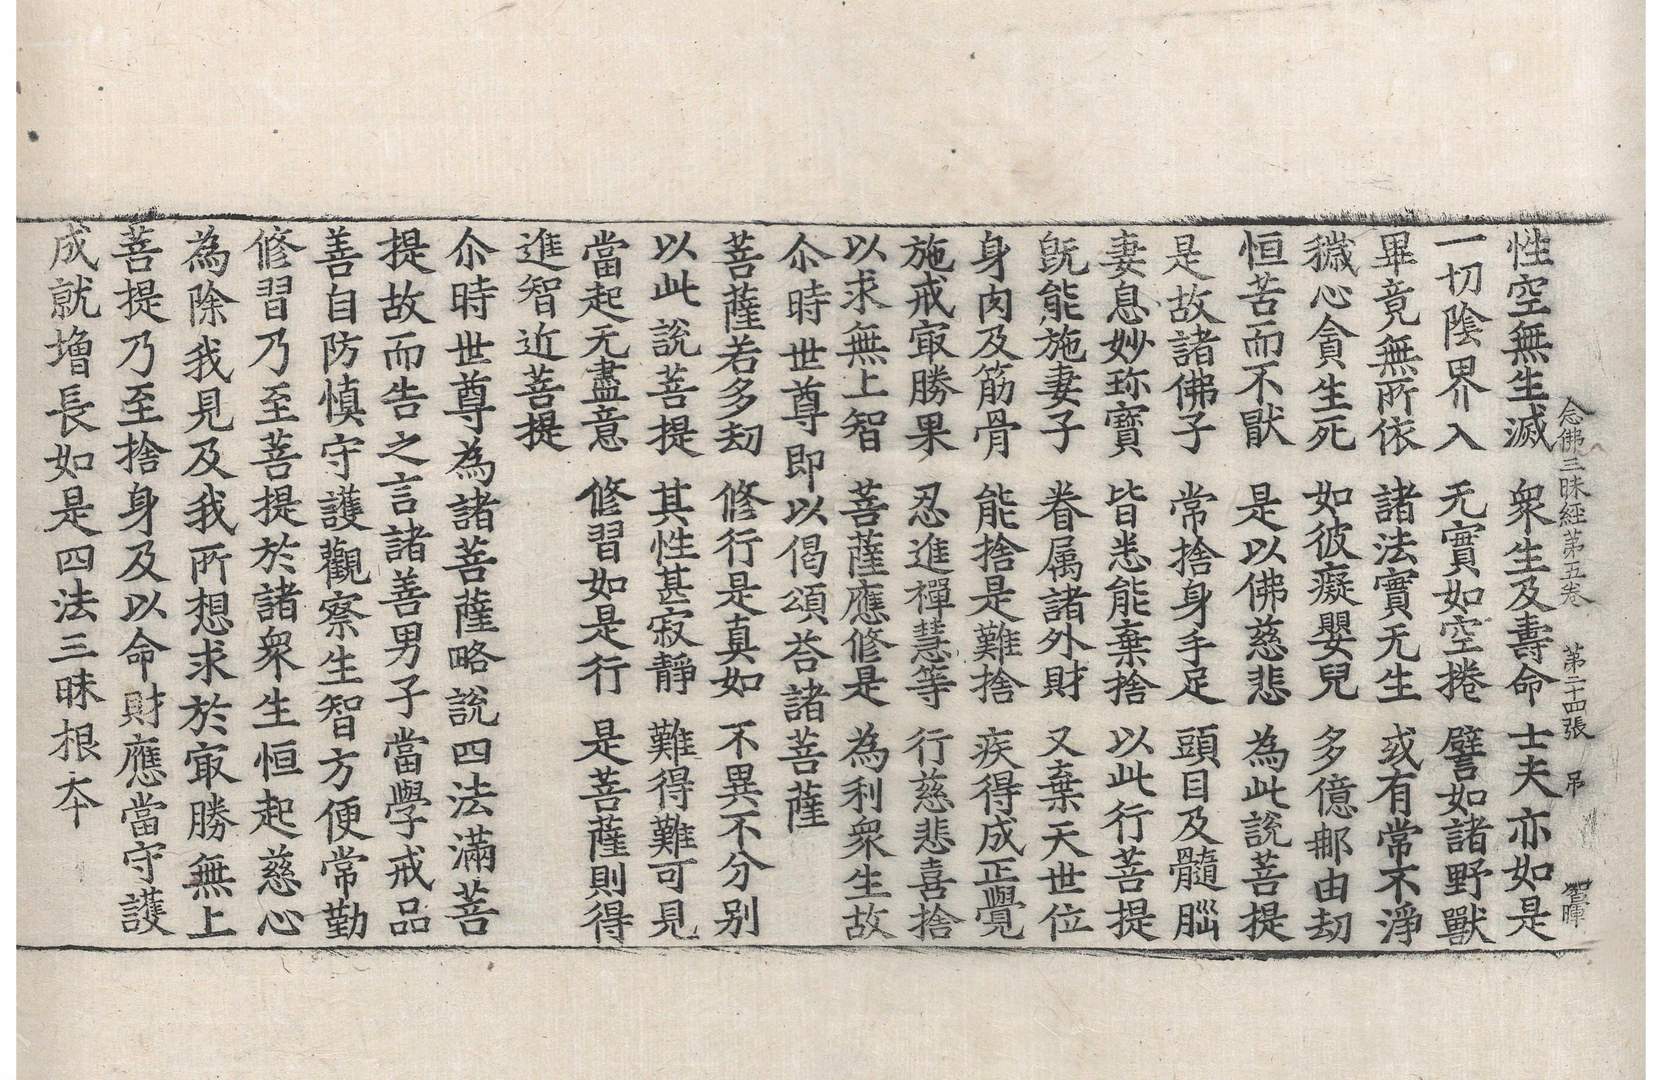 念佛三昧經第五卷　第二十四張　吊　智暉
性空無生滅　衆生及壽命　士夫亦如是
一切陰界入　无實如空捲　譬如諸野獸
畢竟無所依　諸法實无生　或有常不淨
穢心貪生死　如彼癡嬰兒　多億那由劫
恒苦而不猒　是以佛慈悲　為此說菩提
是故諸佛子　常捨身手足　頭目及髓腦
妻息妙珎寶　皆悉能棄捨　以此行菩提
旣能施妻子　眷属諸外財　又棄天世位
身肉及筋骨　能捨是難捨　疾得成正覺
施戒㝡勝果　忍進禪慧等　行慈悲喜捨
以求無上智　菩薩應修是　為利衆生故
尒時世尊即以偈頌荅諸菩薩
菩薩若多劫　修行是真如　不異不分別
以此說菩提　其性甚寂靜　難得難可見
當起无盡意　修習如是行　是菩薩則得
進智近菩提
尒時世尊為諸菩薩略說四法滿菩
提故而告之言諸善男子當學戒品
善自防慎守護觀察生智方便常勤
修習乃至菩提於諸衆生恒起慈心
為除我見及我所想求於㝡勝無上
菩提乃至捨身及以命財應當守護
成就增長如是四法三昧根夲